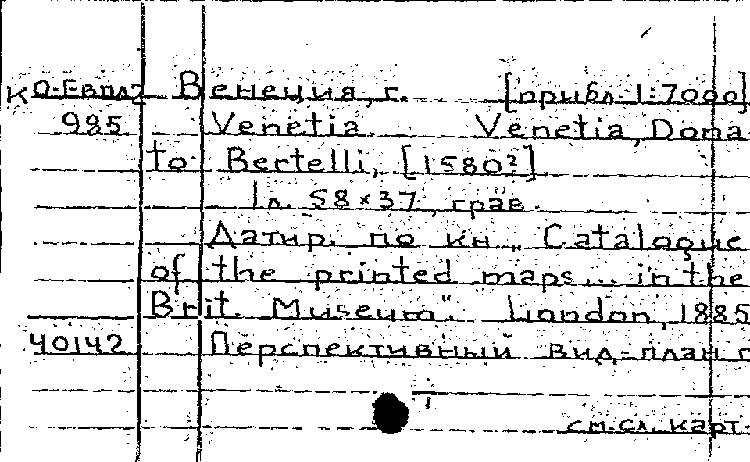 К О-Евпл2 Венеция, г. [прибл. 1:7000]
985 Venetia. Venetia, Dona
to Bertelli, [1580?]
1 л. 58×37, грав.
Датир. по кн. „Catalogue
of the printed maps... in the
Brit. Museum". London, 1885
40142 Перспективный вид-план г
см. сл. карт.